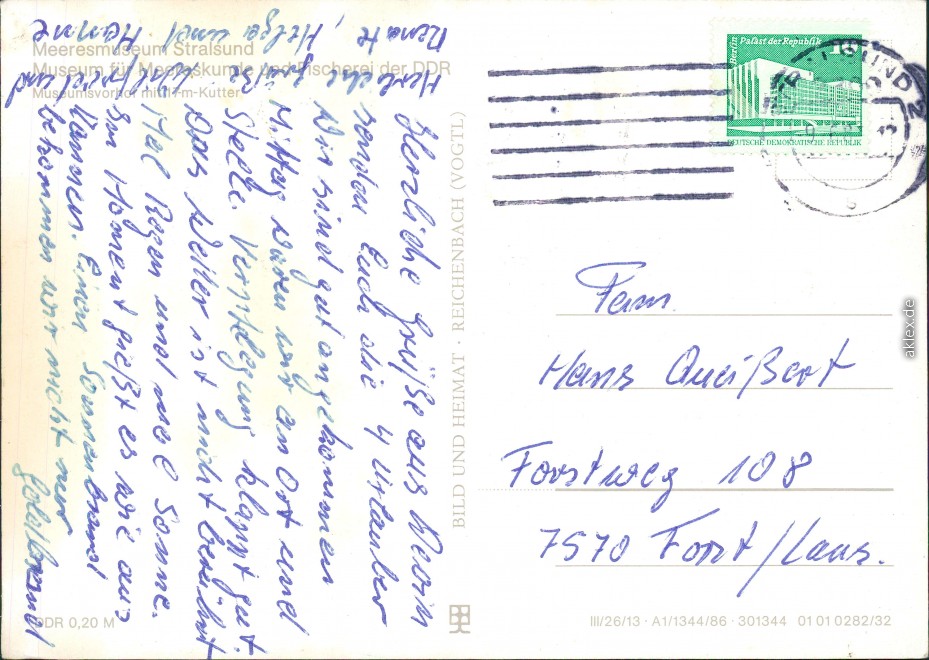 Meeresmuseum Stralsund
Museum für Meereskunde und Fischerei der DDR
Museumsvorhof mit 17-m-Kutter
Herzliche Grüße aus
senden Euch die 4 Urlauber
Wir sind gut angekommen
Mittag waren wir an Ort und
Stelle. Verpflegung klappt gut.
Das Wetter ist nicht berühmt
Mal Regen und mal Sonne.
Im Moment gießt es wie aus
Kannen. Einen Sonnenbrand
bekommen wir nicht nur
Herzliche Grüße
Renate, Helga und
Hanne
BILD UND HEIMAT · REICHENBACH (VOGTL)
Berlin Palast der Republik
DEUTSCHE DEMOKRATISCHE REPUBLIK
Fam.
Hans Queißert
Forstweg 108
7570 Forst/Laus.
DDR 0,20 M
III/26/13 · A1/1344/86 · 301344 01 01 0282/32
aklex.de